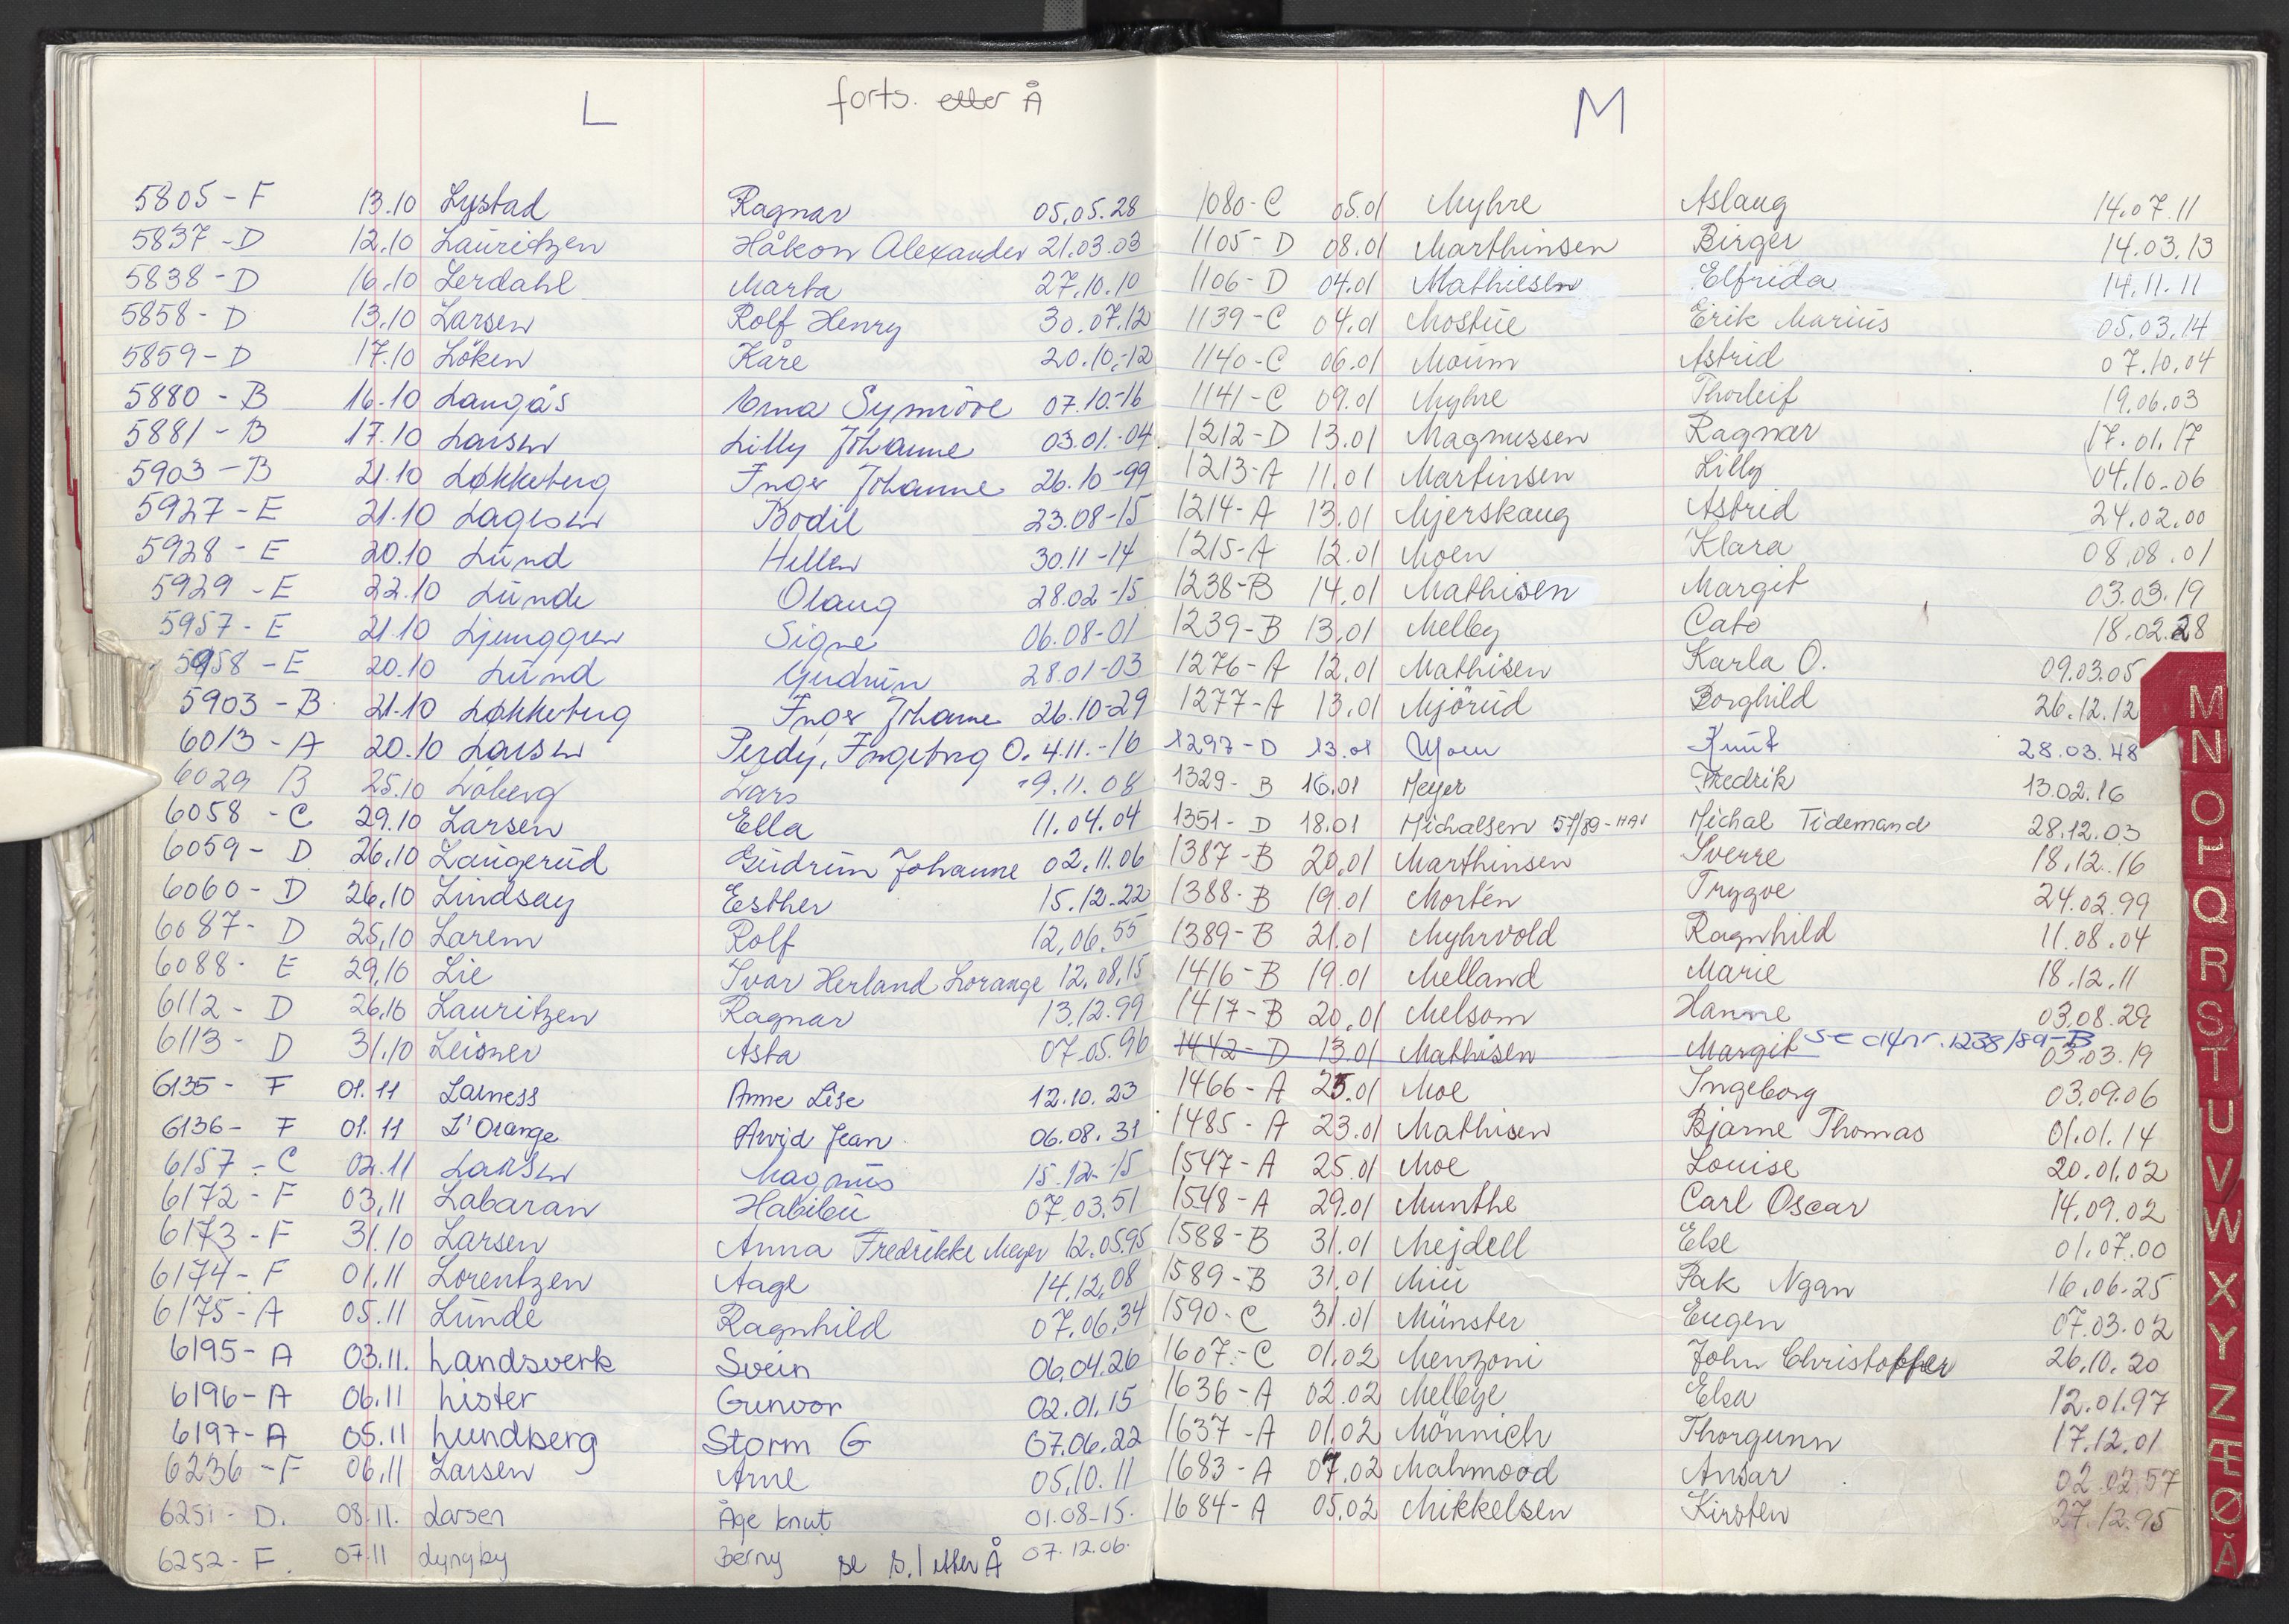 L forts. etter Å
5805 - F 13.10 Lystad Ragnar 05.05.28
5837 - D 12.10 Lauritzen Håkon Alexander 21.03.03
5838 - D 16.10 Lerdahl Marta 27.10.10
5858 - D 13.10 Larsen Rolf Henry 30.07.12
5859 - D 17.10 Löken Kåre 20.10.-12
5880 - B 16.10 Langås Synnöve 07.10.-16
5881 - B 17.10 Larsen Lilly Johanne 03.01.-04
5903 - B 21.10 Løkkeberg Inger Johanne 26.10-99
5927 - E 21.10 Lagesen Bodil 23.08-15
5928 - E 20.10 Lund Hellen 30.11-14
5929 - E 22.10 Lunde Olaug 28.02-15
5957 - E 21.10 Ljunggren Signe 06.08-01
5958 - E 20.10 Lund Gudrun 28.01-03
5903 - B 21.10 Løkkeberg Inger Johanne 26.10-29
6013 - A 20.10 Larsen Perdy, Ingeborg O. 4.11.-16
6029 B 25.10 Löberg Lars 19.11.08
6058 - C 29.10 Larsen Ella 11.04.04
6059 - D 26.10 Laugerud Gudrun Johanne 02.11.06
6060 - D 26.10 Lindsay Esther 15.12.22
6087 - D 25.10 Larem Rolf 12.06.55
6088 - E 29.10 Lie Ivar Herland Lorange 12.08.15
6112 - D 26.10 Lauritzen Ragnar 13.12.99
6113 - D 31.10 Leisner Asta 07.05.96
6135 - F 01.11 Larness Anne Lise 12.10.23
6136 - F 01.11 L'Orange Arvid Jean 06.08.31
6157 - C 02.11 Larsen Magnus 15.12-15
6172 - F 03.11 Labaran Habibu 07.03.51
6173 - F 31.10 Larsen Anna Fredrikke Meyer 12.05.95
6174 - F 01.11 Lorentzen Aage 14.12.08
6175 - A 05.11 Lunde Ragnhild 07.06.34
6195 - A 03.11. Landsverk Svein 06.04.26
6196 - A 06.11 Lister Gunvor 02.01.15
6197 - A 05.11 Lundberg Storm G 07.06.22
6236 - F 06.11 Larsen Arne 05.10.11
6251 - D. 08.11. Larsen Åge Knut 01.08-15.
6252 - F. 07.11 Lyngby Berny se s.1 etter Å 07.12.06.
M
1080 - C 05.01 Myhre Aslaug 14.07.11
1105 - D 08.01 Marthinsen Birger 14.03.13
1106 - D 04.01 Mathiesen Elfrida 14.11.11
1139 - C 04.01 Mostue Erik Marius 05.03.14
1140 - C 06.01 Moum Astrid 07.10.04
1141 - C 09.01 Myhre Thorleif 19.06.03
1212 - D 13.01 Magnussen Ragnar 17.01.17
1213 - A 11.01 Martinsen Lilly 04.10.06
1214 - A 13.01 Mjerskaug Astrid 24.02.00
1215 - A 12.01 Moen Klara 08.08.01
1238 - B 14.01 Mathisen Margit 03.03.19
1239 - B 13.01 Melby Cato 18.02.28
1276 - A 12.01 Mathisen Karla O. 09.03.05
1277 - A 13.01 Mjörud Borghild 26.12.12
1297 - D 13.01 Moen Knut 28.03.48
1329 - B 16.01 Meyer Fredrik 13.02.16
1351 - D 18.01 Michalsen 57/89 Michal Tidemand 28.12.03
1387 - B 20.01 Marthinsen Sverre 18.12.16
1388 - B 19.01 Mortén Trygve 24.02.99
1389 - B 21.01 Myhrvold Ragnhild 11.08.04
1416 - B 19.01 Melland Marie 18.12.11
1417 - B 20.01 Melsom Hanne 03.08.29
1442 - D 13.01 Mathisen Margit se nr. 1238/89-B 03.03.19
1466 - A 25.01 Moe Ingeborg 03.09.06
1485 - A 23.01 Mathisen Bjarne Thomas 01.01.14
1547 - A 25.01 Moe Louise 20.01.02
1548 - A 29.01 Munthe Carl Oscar 14.09.02
1588 - B 31.01 Mejdell Else 01.07.00
1589 - B 31.01 Miu Pak Ngan 16.06.25
1590 - C 31.01 Münster Eugen 07.03.02
1607 - C 01.02 Menzoni John Christoffer 26.10.20
1636 - A 02.02 Mellbye Elsa 12.01.97
1637 - A 01.02 Mönnich Thorgunn 17.12.01
1683 - A 07.02 Mahmood Ansar 02.02.57
1684 - A 05.02 Mikkelsen Kirsten 27.12.95
M
N
O
P
Q
R
S
T
U
V
W
X
Y
Z
Æ
Ø
Å